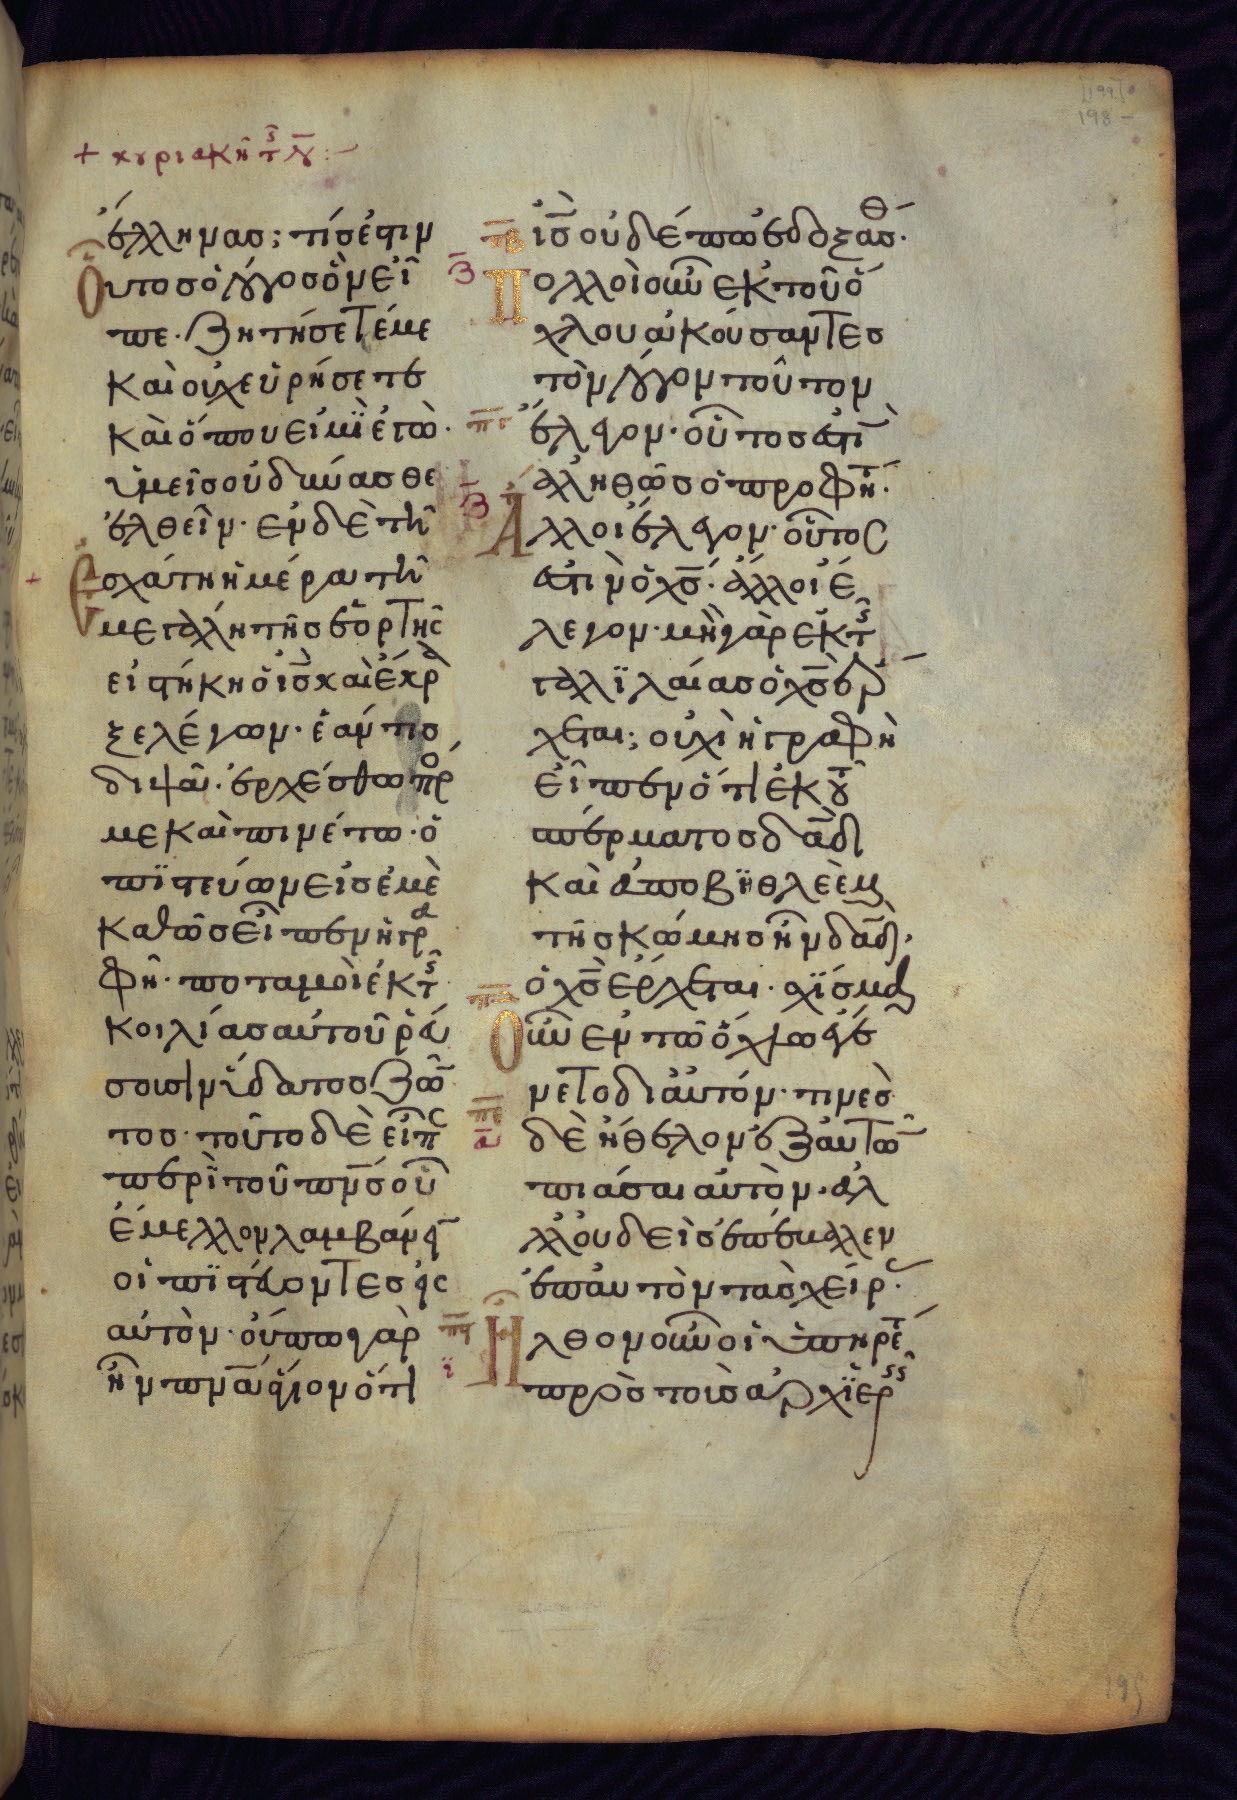 + κυριακῆ τῆς ν̄
ἕλληνας; τίς ἐστιν
οὗτος ὁ λόγος ὃν εἶ
πε· ζητήσετέ με
καὶ οὐχ εὑρήσετε
καὶ ὅπου εἰμὶ ἐγὼ·
ὑμεῖς οὐ δύνασθε
ἐλθεῖν· ἐν δὲ τῆ
ἐσχάτη ἡμέρα τῆ
μεγάλη τῆς ἑορτῆς
εἱστήκη ὁ ι̅ς̅ καὶ ἔκρα
ξε λέγων· ἐάν τις
διψᾶ· ἐρχέσθω πρό
με καὶ πινέτω· ὁ
πιστεύων εἰς ἐμὲ
καθὼς εἶπεν ἡ γρα
φή· ποταμοὶ ἐκ τῆς
κοιλίας αὐτοῦ ῥεύ
σουσιν ὕδατος ζῶν
τος· τοῦτο δὲ εἶπε
περὶ τοῦ π̅ν̅ς̅ οὗ
ἔμελλον λαμβάνειν
οἱ πιστεύοντες εἰς
αὐτὸν· οὔπω γὰρ
ἦν π̅ν̅α̅ ἅγιον ὅτι
ι̅ς̅ οὐδέπω ἐδοξάσθ·
πολλοὶ οὖν ἐκ τοῦ ὄ
χλου ἀκούσαντες
τὸν λόγον τοῦτον
ἔλεγον· οὗτος ἐστὶν
ἀληθῶς ὁ προφήτ·
ἄλλοι ἔλεγον· οὗτος
ἐστιν ὁ χ̅ς̅· ἄλλοι ἔ
λεγον· μὴ γὰρ ἐκ τῆς
γαλιλαίας ὁ χ̅ς̅ ἔρ
χεται; οὐχὶ ἡ γραφὴ
εἶπεν ὅτι ἐκ τοῦ
σπέρματος δ̅α̅δ̅
καὶ ἀπὸ βηθλεὲμ
τῆς κώμης ἦν δ̅α̅δ̅·
ὁ χ̅ς̅ ἔρχεται· σχίσμα
οὖν ἐν τῶ ὄχλω ἐγέ
νετο δι αὐτόν· τινὲς
δὲ ἤθελον ἐξ αὐτῶν
πιάσαι αὐτὸν· ἀλ
λ οὐδεὶς ἐπέβαλεν
ἐπ αὐτὸν τὰς χεῖρας·
ἦλθον οὖν οἱ ὑπηρέτ
πρὸς τοὺς ἀρχιερεῖς